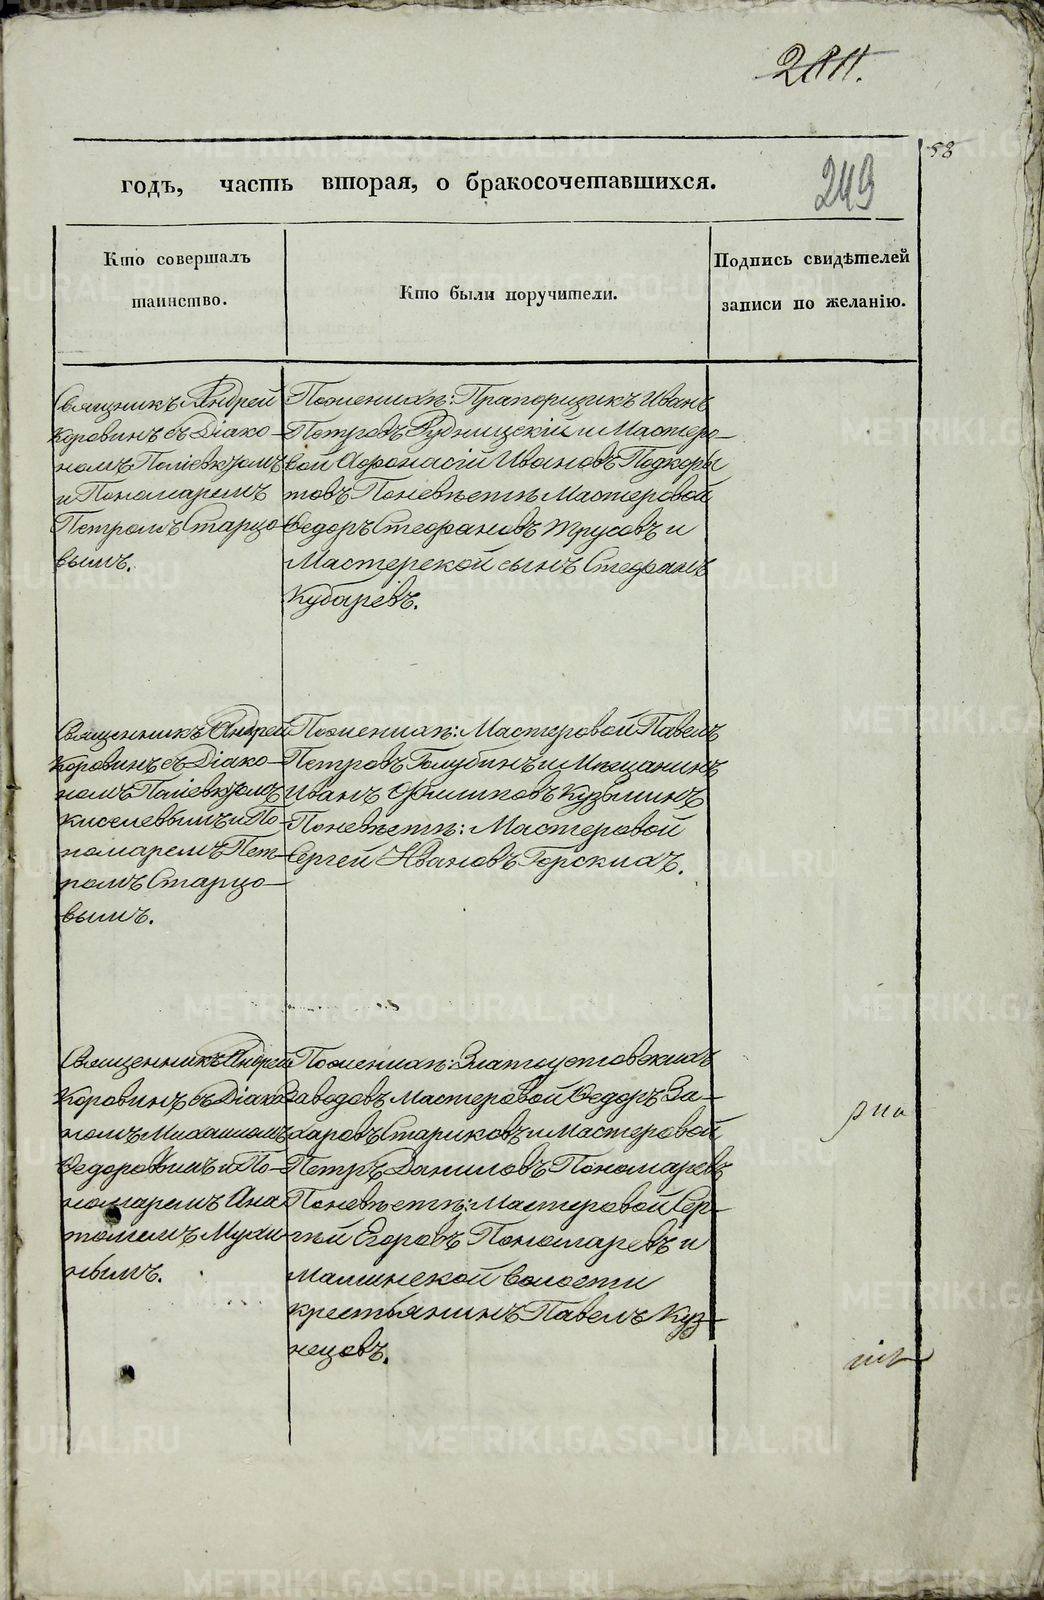 211.
58
годъ, часть вторая, о бракосочетавшихся.
249
Кто совершалъ
таинство.
Кто были поручители.
Подпись свидѣтелей
записи по желанію.
Свящникъ Андрей
Коровинъ съ Діако-
номъ Поліевктомъ
и Пономаремъ
Петромъ Старцо-
вымъ.
Поженихѣ: Прапорщикъ Иванъ
Петровъ Рудницкій и Мастеро-
вой Афонасій Ивановъ Подкоры
товъ Поневѣстѣ Мастеровой
Федоръ Стефановъ Трусовъ и
Мастерской сынъ Стефанъ
Кубаревъ.
Священникъ Андрей
Коровинъ съ Діако-
номъ Поліевктомъ
Киселевымъ и По-
номаремъ Пет-
ромъ Старцо-
вымъ.
Поженихѣ: Мастеровой Павелъ
Петровъ Голубинъ и Мѣщанинъ
Иванъ Филиповъ Кузьминъ
Поневѣстѣ: Мастеровой
Сергей Ивановъ Горскихъ.
Священникъ Андрей
Коровинъ съ Діако-
номъ Михаиломъ
Федоровымъ и По-
номаремъ Ана
толіемъ Мухи-
нымъ.
Поженихѣ: Златоустовскихъ
Заводовъ Мастеровой Федоръ За-
харовъ Стариковъ и Мастеровой
Петръ Даниловъ Пономаревъ
Поневѣстѣ: Мастеровой Сер-
гѣй Егоровъ Пономаревъ и
Маминской волости
крестьянинъ Павелъ Куз-
нецовъ.
METRIKI.GASO-URAL.RU